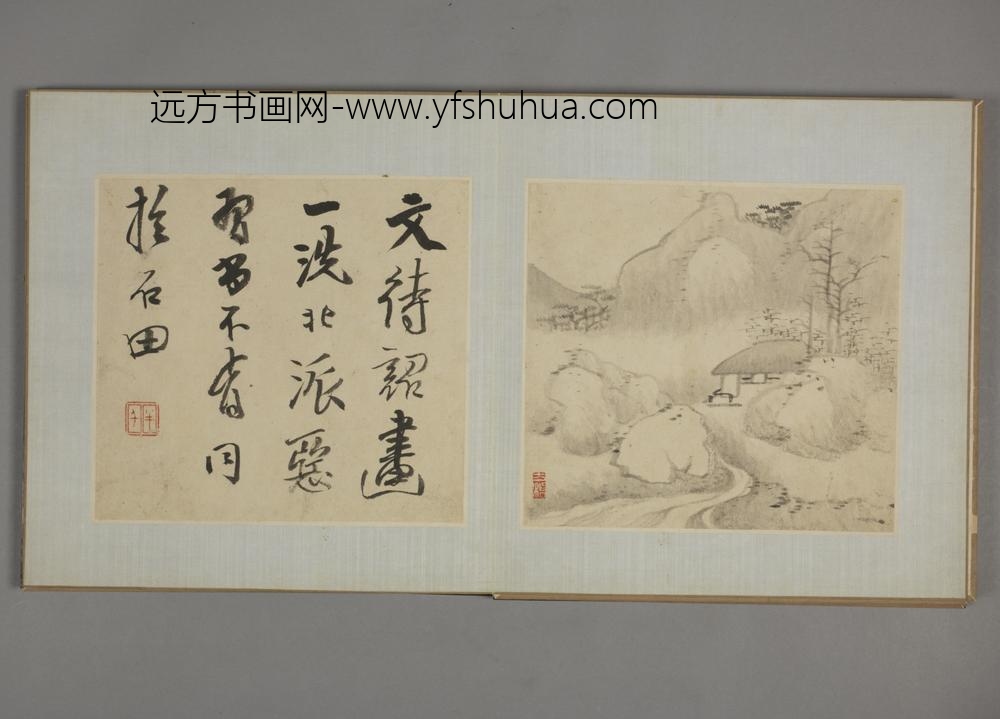 远方书画网-www.yfshuhua.com
文待詔畫
一洗北派惡
習而不肯同
於石田